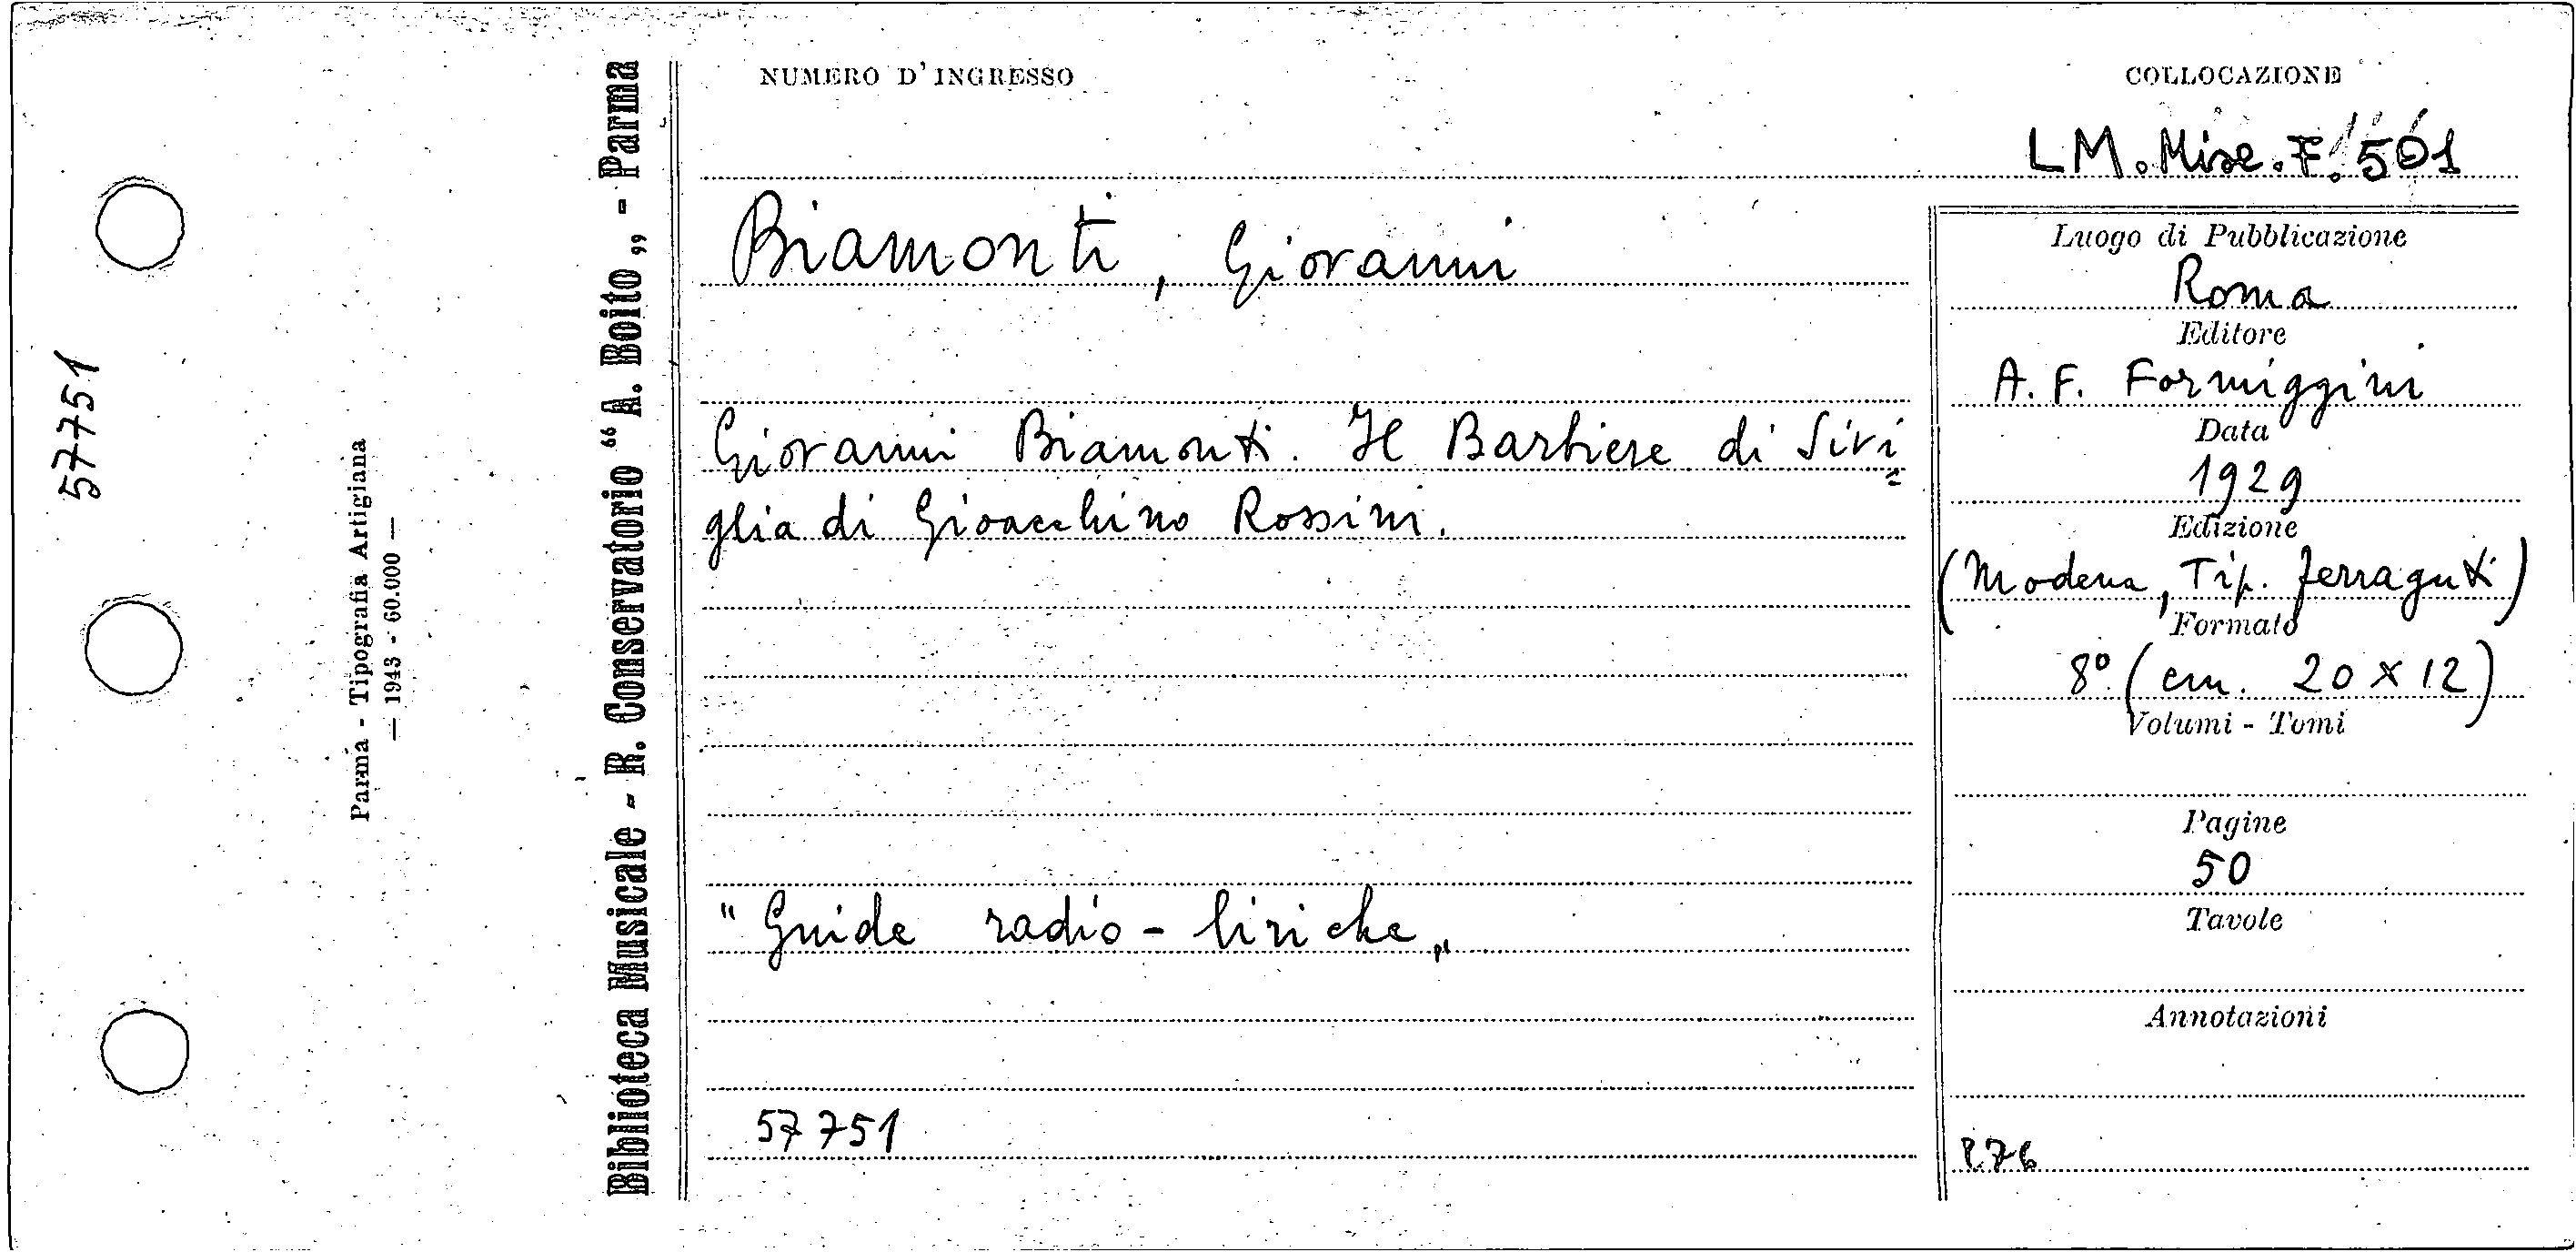 57751
Parma - Tipografia Artigiana
— 1943 - 60.000 —
Biblioteca Musicale - R. Conservatorio “A. Boito„ - Parma
NUMERO D'INGRESSO
COLLOCAZIONE
LM. Misc. F. 501
Biamonti, Giovanni
Giovanni Biamonti. Il Barbiere di Sivi=
glia di Gioacchino Rossini.
"Guide radio-liriche„
57751
Luogo di Pubblicazione
Roma
Editore
A. F. Formiggini
Data
1929
Edizione
(Modena, Tip. Ferraguti)
Formato
8° (cm. 20 x 12)
Volumi - Tomi
Pagine
50
Tavole
Annotazioni